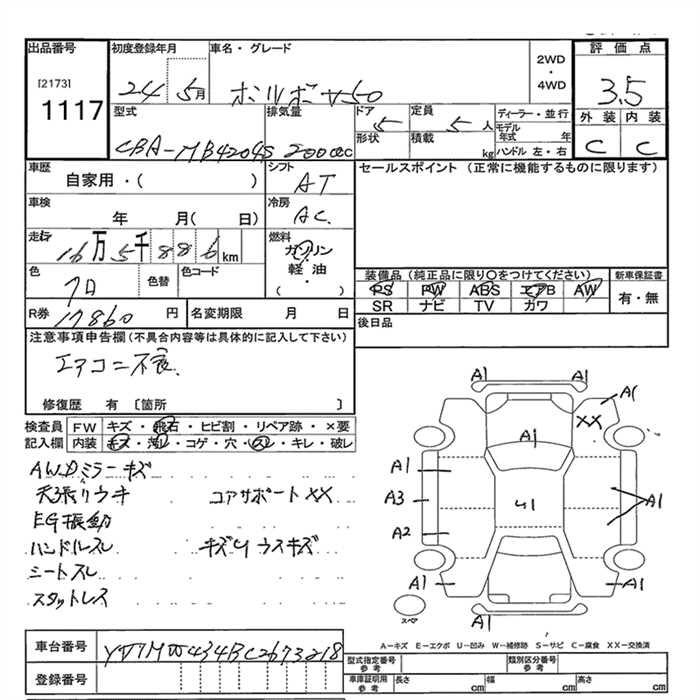 出品番号
[2173]
1117
初度登録年月
24 5月
車名・グレード
ボルボ V50
2WD
・
4WD
評価点
3.5
外装 内装
C C
型式
CBA-MB4204S
排気量
2000cc
ドア
5
形状
定員
5人
積載
kg
ディーラー・並行
モデル年式 年
ハンドル 左・右
車歴
自家用・( )
シフト
AT
車検
年 月( 日)
冷房
AC
走行
16万5千886km
燃料
ガソリン
・
軽・油
( )
色
クロ
色替
色コード
R券 17860円
名変期限 月 日
セールスポイント (正常に機能するものに限ります)
装備品(純正品に限り○をつけてください)
PS PW ABS エアB AW
SR ナビ TV カワ
新車保証書
有・無
後日品
注意事項申告欄(不具合内容等は具体的に記入して下さい)
エアコン不良.
修復歴 有 [箇所 ]
検査員記入欄
FW キズ・飛石・ヒビ割・リペア跡・×要
内装 キズ・汚レ・コゲ・穴・スレ・キレ・破レ
A.W.Dミラーキズ
天張リウキ コアサポートXX
EG振動
ハンドルスレ キズUウスキズ
シートスレ
スタットレス
A1 A1
A1
XX
A1
A1
A3
U1
A1
A2
A1 A1
A1
スペア
A-キズ E-エクボ U-凹み W-補修跡 S-サビ C-腐食 XX-交換済
車台番号
登録番号
型式指定番号参考
類別区分番号参考
車庫証明用参考
長さ cm
幅 cm
高さ cm